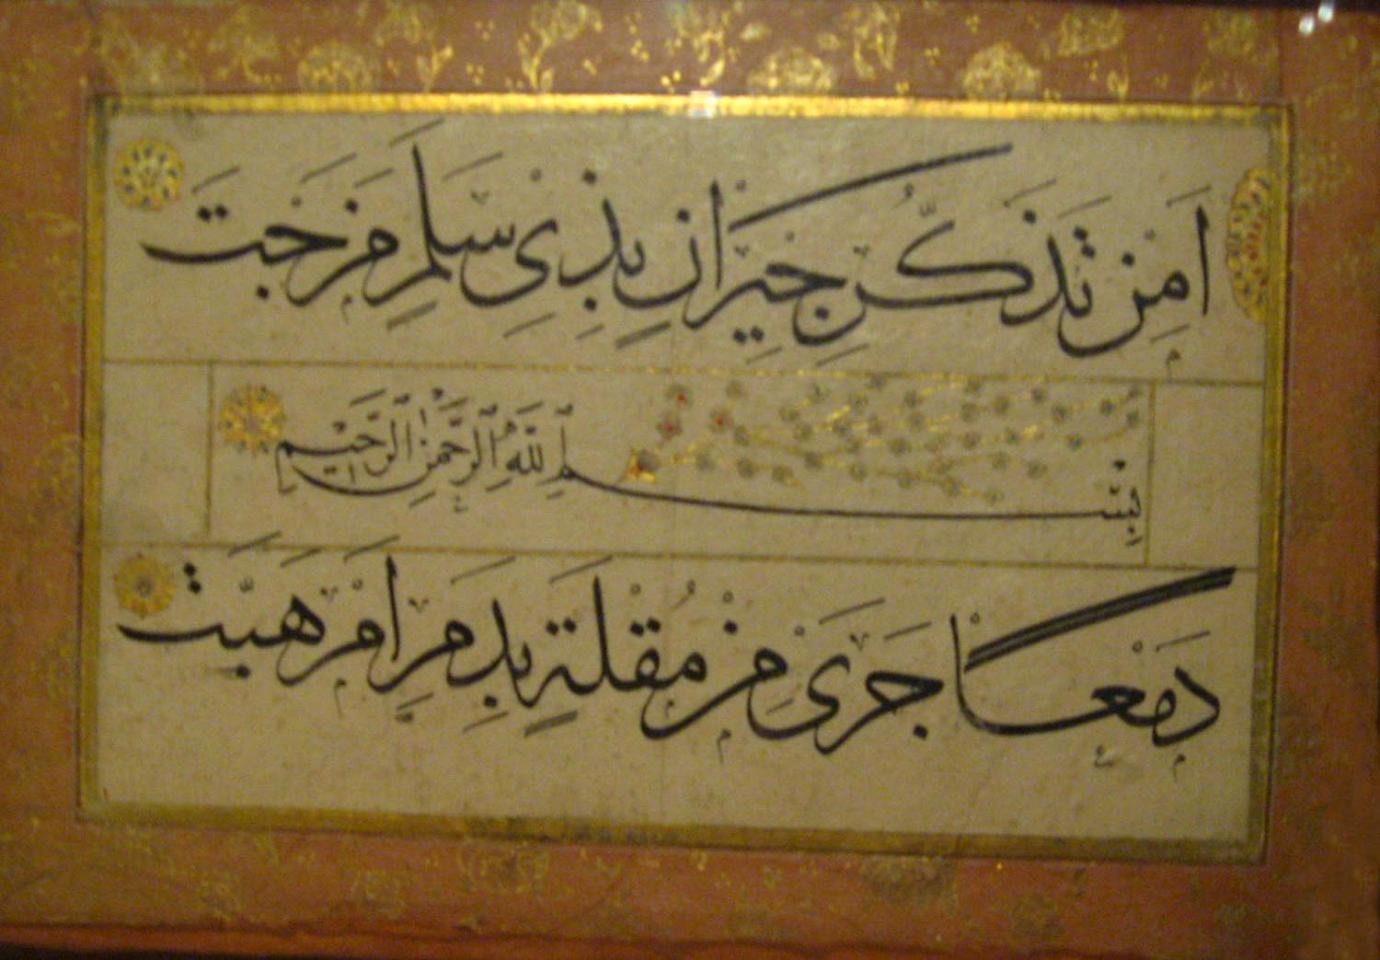 اَمِنْ تَذَكُّرِ جِيرَانٍ بِذِي سَلَمٍ مَزَجْتَ
بِسْمِ اللَّهِ الرَّحْمٰنِ الرَّحِيمِ
دَمْعًا جَرَى مِنْ مُقْلَةٍ بِدَمٍ اَمْ هَبَّتْ